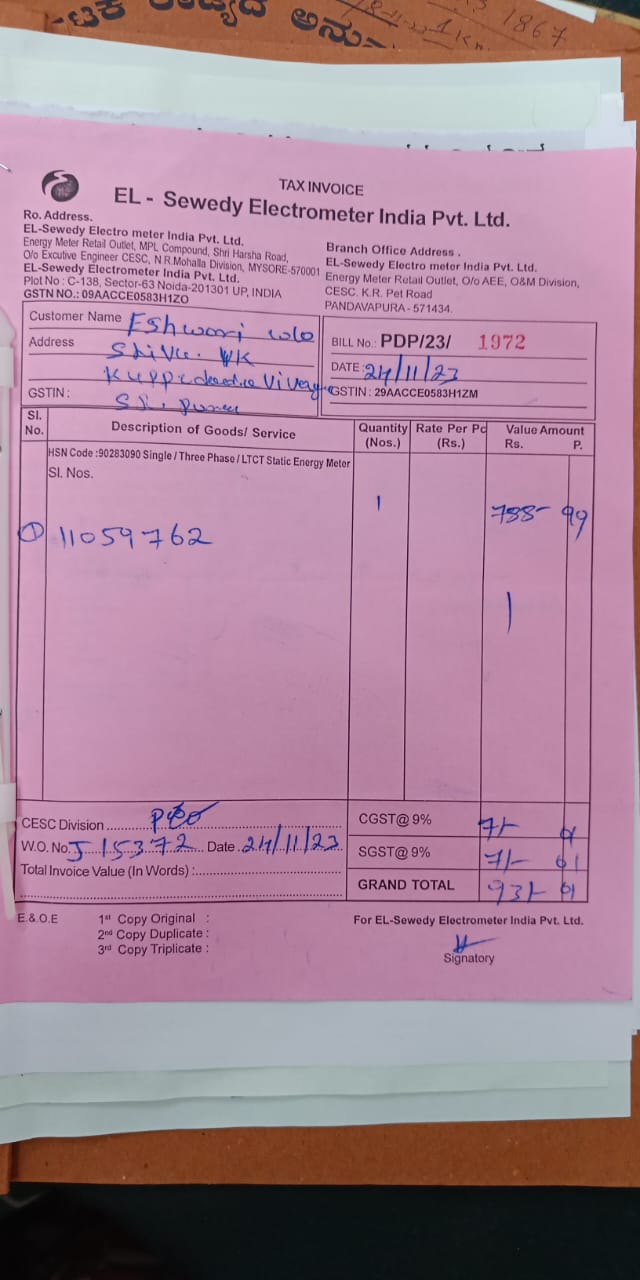 1867
TAX INVOICE
EL - Sewedy Electrometer India Pvt. Ltd.
Ro. Address.
EL-Sewedy Electro meter India Pvt. Ltd.
Energy Meter Retail Outlet, MPL Compound, Shri Harsha Road,
O/o Excutive Engineer CESC, N.R.Mohalla Division, MYSORE-570001
EL-Sewedy Electrometer India Pvt. Ltd.
Plot No : C-138, Sector-63 Noida-201301 UP, INDIA
GSTN NO.: 09AACCE0583H1ZO
Branch Office Address .
EL-Sewedy Electro meter India Pvt. Ltd.
Energy Meter Retail Outlet, O/o AEE, O&M Division,
CESC. K.R. Pet Road
PANDAVAPURA - 571434.
Customer Name Eshwari w/o
Address
GSTIN :
BILL No.: PDP/23/ 1972
DATE : 24/11/23
GSTIN : 29AACCE0583H1ZM
Sl. No. Description of Goods/ Service Quantity (Nos.) Rate Per Pc (Rs.) Value Amount Rs. P.
HSN Code :90283090 Single / Three Phase / LTCT Static Energy Meter
Sl. Nos.
1 788- 99
① 11059762
CESC Division
W.O. No. J15372 Date 24/11/23
Total Invoice Value (In Words) :
CGST@ 9% 71-
SGST@ 9% 71- 01
GRAND TOTAL 931- 01
E.&.O.E
1st Copy Original :
2nd Copy Duplicate :
3rd Copy Triplicate :
For EL-Sewedy Electrometer India Pvt. Ltd.
Signatory